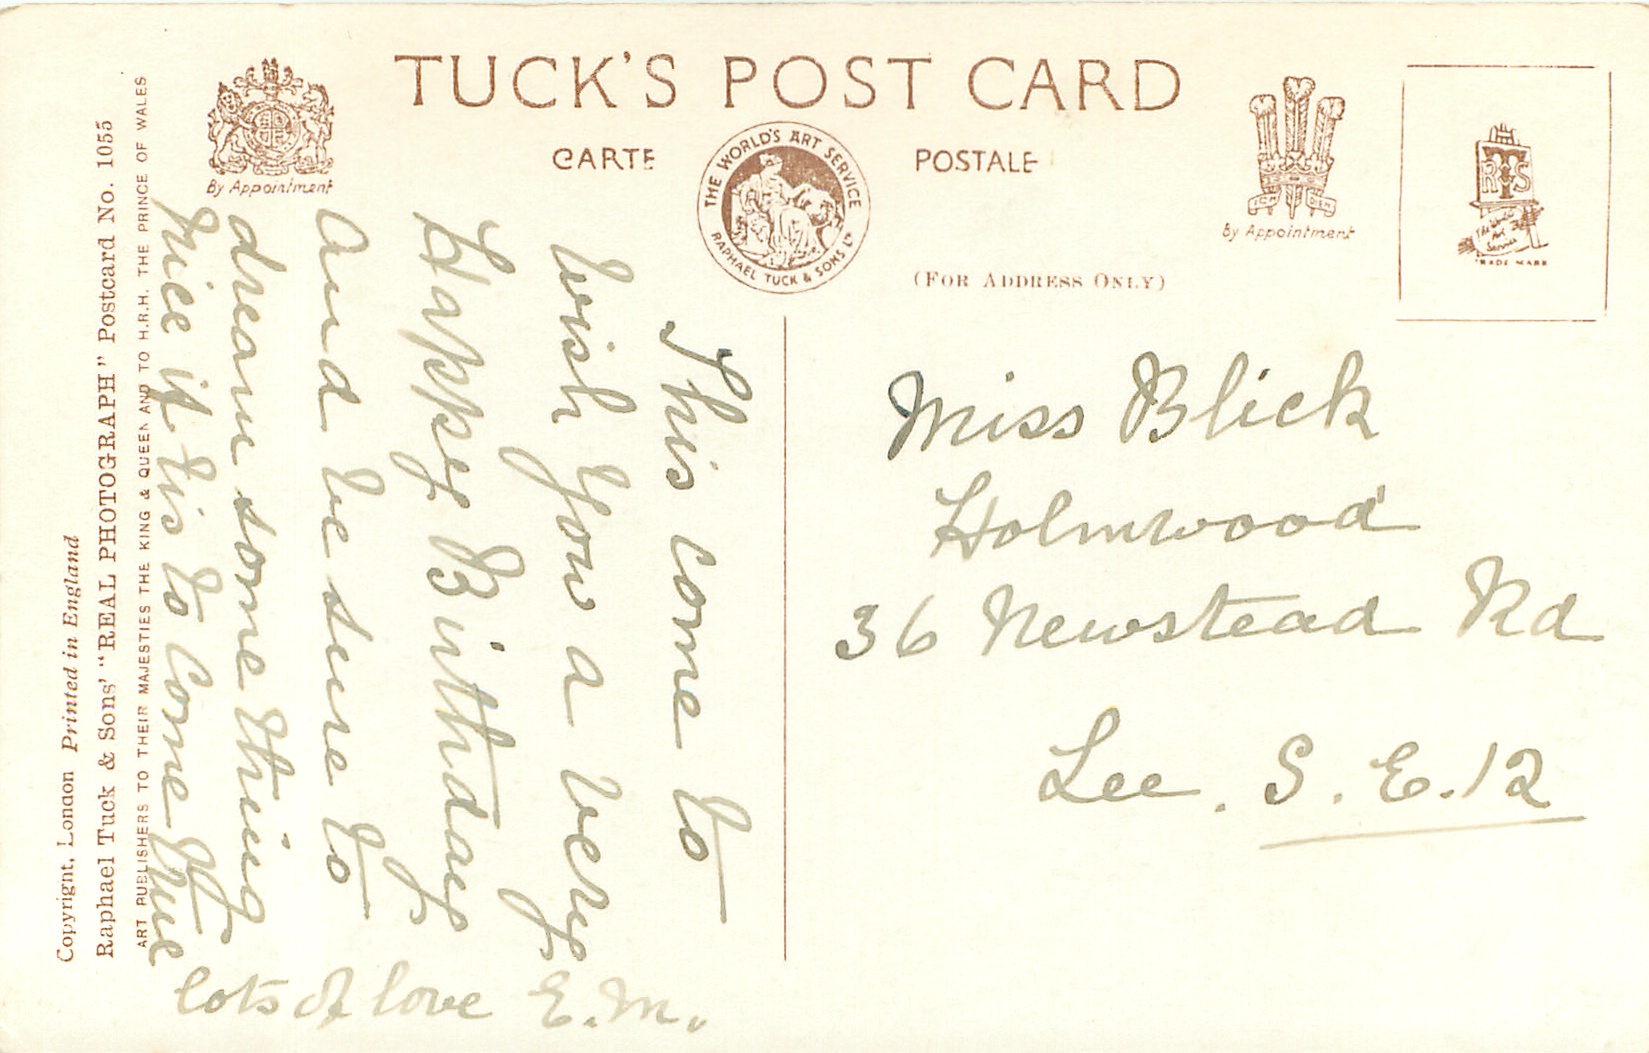 TUCK'S POST CARD
CARTE POSTALE
By Appointment
THE WORLD'S ART SERVICE
RAPHAEL TUCK & SONS LD
By Appointment
ICH DIEN
R T S
The World's
Art
Service
TRADE MARK
(FOR ADDRESS ONLY)
Copyright, London Printed in England
Raphael Tuck & Sons' "REAL PHOTOGRAPH" Postcard No. 1055
ART PUBLISHERS TO THEIR MAJESTIES THE KING & QUEEN AND TO H.R.H. THE PRINCE OF WALES
This come to
wish you a very
Happy Birthday
and be sure to
dream some thing
nice if tis to come true
lots of love E.M.
Miss Blick
Holmwood
36 Newstead Rd
Lee. S.E.12